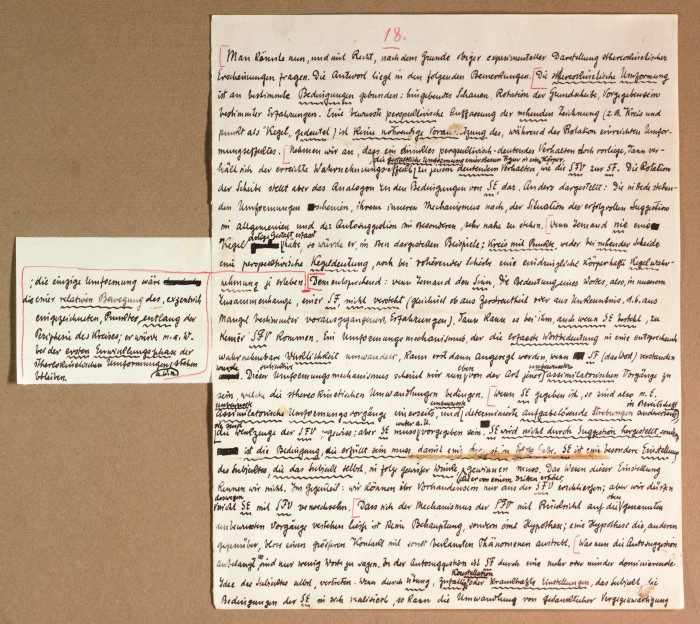 18.
[Man könnte nun, und mit Recht, nach dem Grunde obiger experimenteller Darstellung stereokinetischer
Erscheinungen fragen. Die Antwort liegt in den folgenden Bemerkungen. [Die stereokinetische Umformung
ist an bestimmte Bedingungen gebunden: hingebendes Schauen, Rotation der Grundscheibe, Vorgegebensein
bestimmter Erfahrungen. Eine bewusste perspektivische Auffassung der ruhenden Zeichnung (z.B. Kreis und
punkt als "Kegel" gedeutet) ist keine notwendige Voraussetzung des, während der Rotation eintretenden Umfor-
mungseffektes. [Nehmen wir an, dass ein dunkles perspektivisch-deutendes Verhalten doch vorliege, dann ver-
die gestaltliche Umformung einer ebenen Figur in ein Körper,
hält sich der erreichte Wahrnehmungseffekt zu jenem deutenden Verhalten wie die SFV zur SF. Die Rotation
der Scheibe stellt aber das Analogon zu den Bedingungen von SE dar. Anders dargestellt: Die nebenstehen-
den Umformungen scheinen, ihrem inneren Mechanismus nach, der Situation des erfolgvollen Suggestion
im allgemeinen und der Autosuggestion im Besonderen, sehr nahe zu stehen. [wenn Jemand nie eine
Kegel habe, so würde er, in dem dargestellten Beispiele; Kreis mit Punkte, weder bei ruhender Scheibe
eine perspektivische Kegeldeutung, noch bei rotierender Scheibe eine eindringliche körperhafte Kegelwahr-
nehmung je erleben
; die einzige Umformung wäre
die einer relativen Bewegung des, exzentrisch
eingezeichneten, Punktes, entlang der
Peripherie des Kreises; er würde m.a.W.
bei der ersten Entwicklungsphase der
stereokinetischen Umformungen stehen
bleiben.
[Dementsprechend: wenn Jemand den Sinn, die Bedeutung eines Wortes, also, in unserem
Zusammenhange, einer SF nicht versteht (gleichviel ob aus Zerstreutheit oder aus Unkenntnis, d.h. aus
Mangel bestimmter vorausgegangener, Erfahrungen), dann kann es bei ihm, auch wenn SE besteht, zu
keiner SFV kommen. Ein Umformungsmechanismus der die erfasste Wortbedeutung in eine entsprechend
wahrnehmbare Wirklichkeit umwandere, kann erst dann angeregt werden, wenn SF (das Wort) verstanden
wurde. Dieser Umformungsmechanismus scheint mir nun von der Art jener assimilatorischen Vorgänge zu
sein, welche die stereokinetischen Umwandlungen bedingen. [wenn SE gegeben ist, so sind also m.E.
assimilatorische Umformungsvorgänge einerseits, und determinierte aufgabelösende Strebungen andrerseits
die Werkzeuge der SFV gewiss; aber SE muss vorgegeben sein. SE wird nicht durch Suggestion hergestellt, sondern
ist die Bedingung, die erfüllt sein muss, damit eine SE ist eine besondere Einstellung
des Subjektes, die das Subjekt selbst, in folge gewisser Winke, gewinnen muss. Das Wesen dieser Einstellung
kennen wir nicht. Im Gegenteil: wir können ihr Vorhandensein nur aus der SFV erschliessen; aber wir dürfen
nicht SE mit SFV verwechseln. [Dass sich der Mechanismus der SFV mit Rücksicht auf die genannten
unbewussten Vorgänge verstehen liesse ist kein Behauptung, sondern eine Hypothese; eine Hypothese die, anderen
gegenüber, bloss einen grösseren Kontakt mit sonst bekannten Phänomenen anstrebt. [Was nun die Autosuggestion
anbelangt, sind nur wenig Worte zu sagen. In der Autosuggestion ist SF durch eine mehr oder minder dominierende
Idee des Subjektes selbst, vertreten. Wenn durch Übung, zufällige oder krankhafte Einstellungen, das Subjekt, die
Bedingungen der SE in sich realisiert, so kann die Umwandlung von gedanklicher Vergegenwärtigung